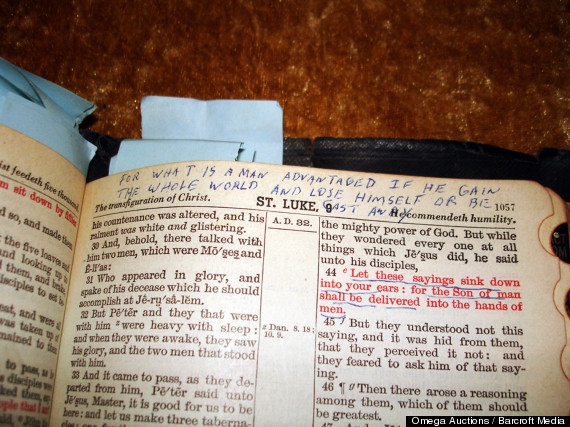 ist feedeth five
m sit down by
d so, and made
the five loaves
and looking up
them, and
disciples to
at, and were
was taken up
to pass, as
disciples
FOR WHAT IS A MAN ADVANTAGED IF HE GAIN
THE WHOLE WORLD AND LOSE HIMSELF OR BE
CAST AWAY
The transfiguration of Christ.
ST. LUKE, 9
Recommendeth humility.
1057
his countenance was altered, and his
raiment was white and glistering.
30 And, behold, there talked with
him two men, which were Mō´ses and
Ē-lī´as:
31 Who appeared in glory, and
spake of his decease which he should
accomplish at Jē-rụ´sȧ-lĕm.
32 But Pē´tẽr and they that were
with him z were heavy with sleep:
and when they were awake, they saw
his glory, and the two men that stood
with him.
33 And it came to pass, as they de-
parted from him, Pē´tẽr said unto
Jē´ṣus, Master, it is good for us to be
here: and let us make three taberna-
A. D. 32.
z Dan. 8. 18;
10. 9.
the mighty power of God. But while
they wondered every one at all
things which Jē´ṣus did, he said
unto his disciples,
44 e Let these sayings sink down
into your ears: for the Son of man
shall be delivered into the hands of
men.
45 f But they understood not this
saying, and it was hid from them,
that they perceived it not: and
they feared to ask him of that say-
ing.
46 ¶ g Then there arose a reasoning
among them, which of them should
be greatest.
Omega Auctions / Barcroft Media